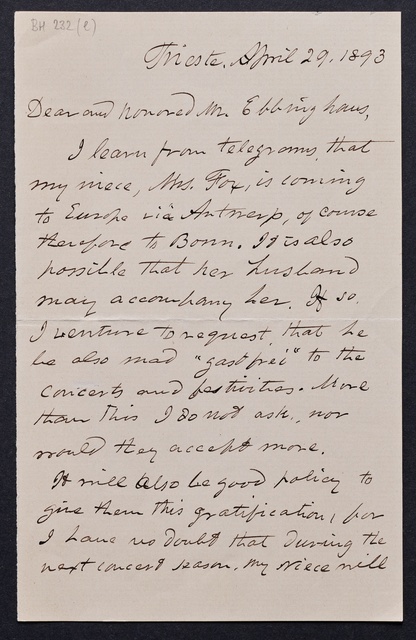 BH 222 (2)
Trieste, April 29, 1893
Dear and honored Mr. Ebbinghaus,
I learn from telegrams, that
my niece, Mrs. Fox, is coming
to Europe via Antwerp, of course
therefore to Bonn. It is also
possible that her husband
may accompany her. If so,
I venture to request, that he
be also mad "gastfrei" to the
concerts and festivities. More
than this I do not ask, nor
would they accept more.
It will also be good policy to
give them this gratification, for
I have no doubt that during the
next concert season, my niece will